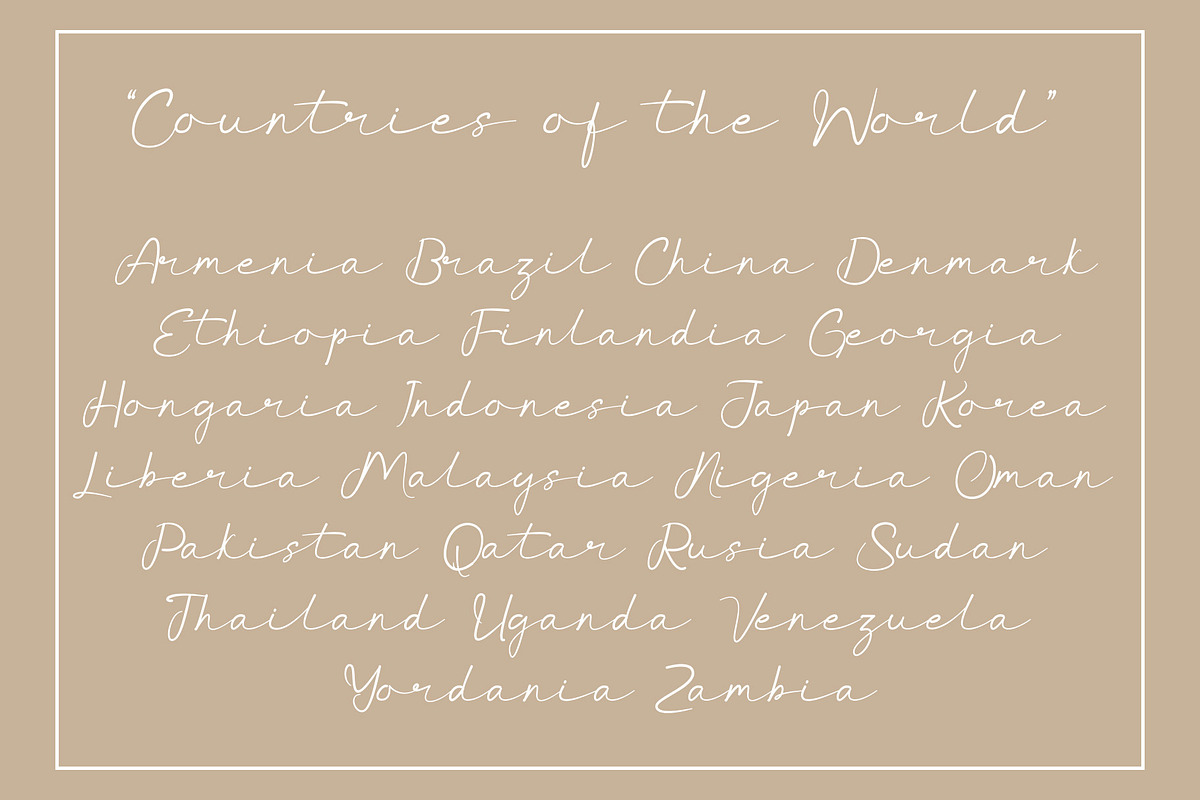 “Countries of the World”
Armenia Brazil China Denmark
Ethiopia Finlandia Georgia
Hongaria Indonesia Japan Korea
Liberia Malaysia Nigeria Oman
Pakistan Qatar Rusia Sudan
Thailand Uganda Venezuela
Yordania Zambia